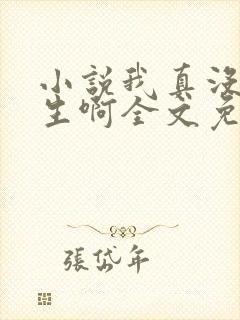 小說我真沒
生啊全文免
張岱年